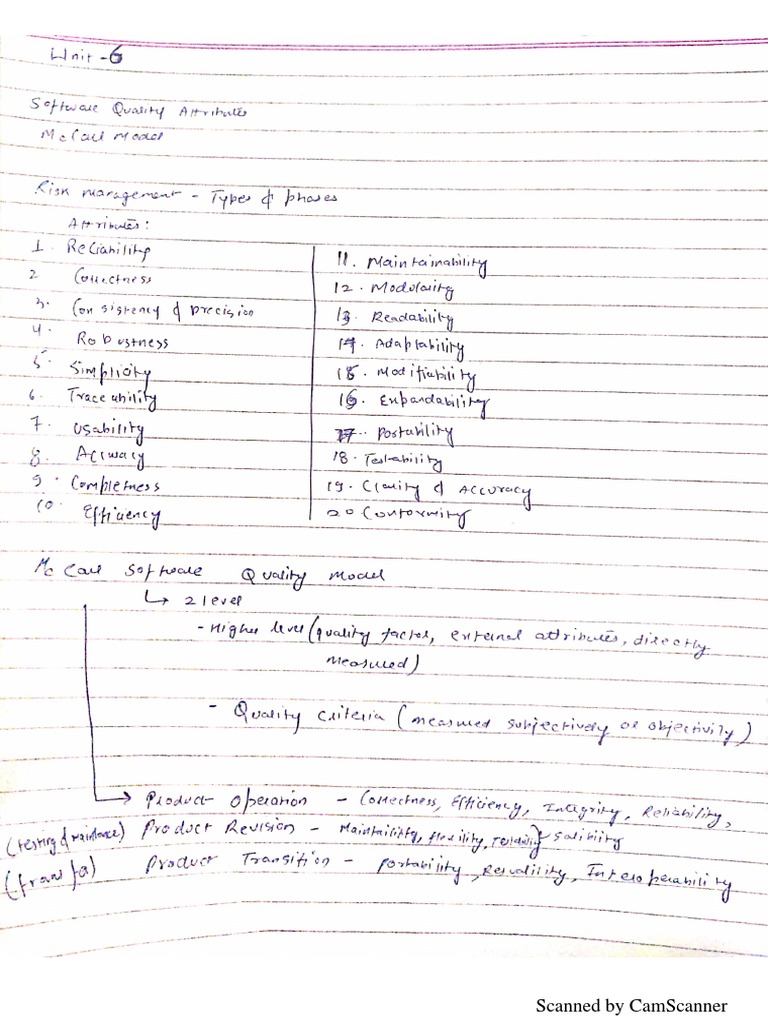 Unit - 6
Software Quality Attributes
McCall Model
Risk management - Types & phases
Attributes:
1. Reliability
2 Correctness
3. Consistency & precision
4. Robustness
5. Simplicity
6. Traceability
7. Usability
8. Accuracy
9. Completness
10. Efficiency
11. Maintainability
12. Modularity
13. Readability
14. Adaptability
15. Modifiability
16. Expandability
17. Portability
18. Testability
19. Clarity & Accuracy
20 Conformity
McCall Software Quality Model
↳ 2 level
- Higher level (quality factor, external attributes, directly
measured)
- Quality Criteria (measured subjectively or objectivity)
→ Product Operation - Correctness, Efficiency, Integrity, Reliability,
(testing & maintance) Product Revision - flexility,
Product Transition - Portability, Interoperability
Scanned by CamScanner